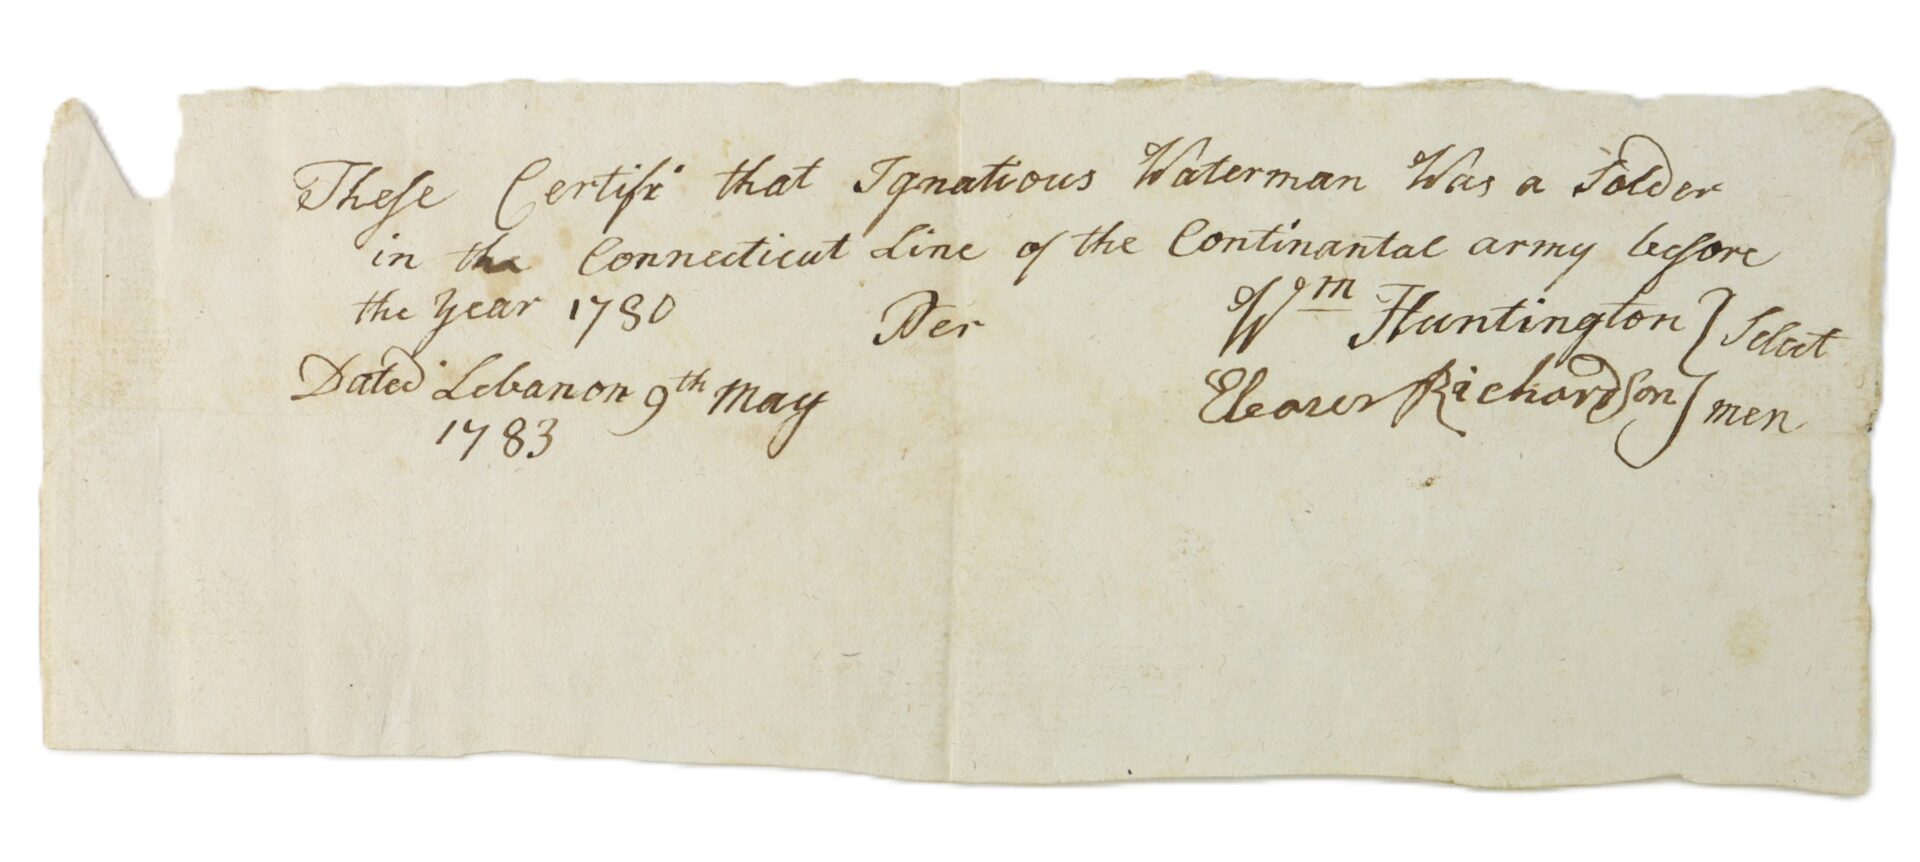 These Certify that Ignatious Waterman Was a Solder
in the Connecticut Line of the Continantal army before
the year 1780 Per Wm Huntington } Select
Dated Lebanon 9th May Eleazer Richardson } men
1783